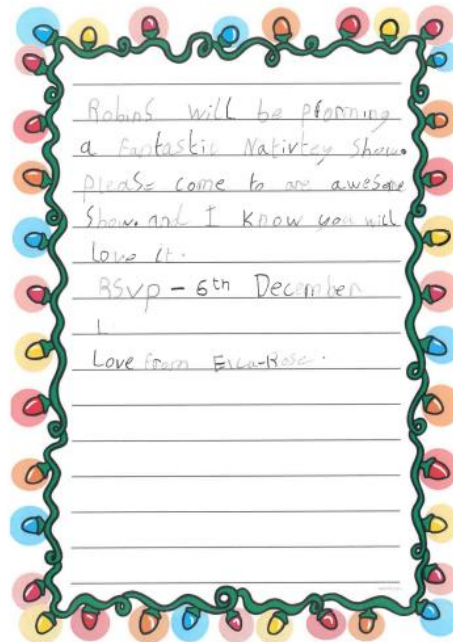 Robins will be pforming
a Fantastic Nativtey Show.
please come to are awesome
Show. and I know you will
love it.
RSVP - 6th December
L
Love from